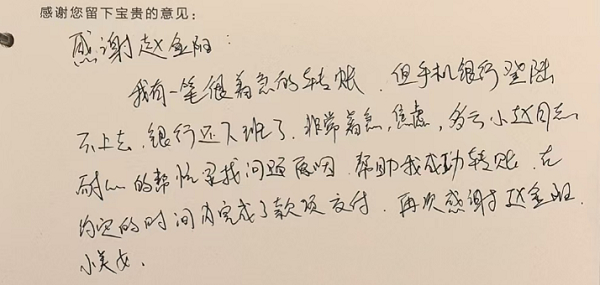 感谢您留下宝贵的意见：
感谢赵金阳：
我有一笔很着急的转账，但手机银行登陆
不上去，银行还下班了，非常着急，焦虑，多亏小赵同志
耐心的帮忙寻找问题原因，帮助我成功转账，在
约定的时间内完成了款项交付，再次感谢赵金阳
小美女．